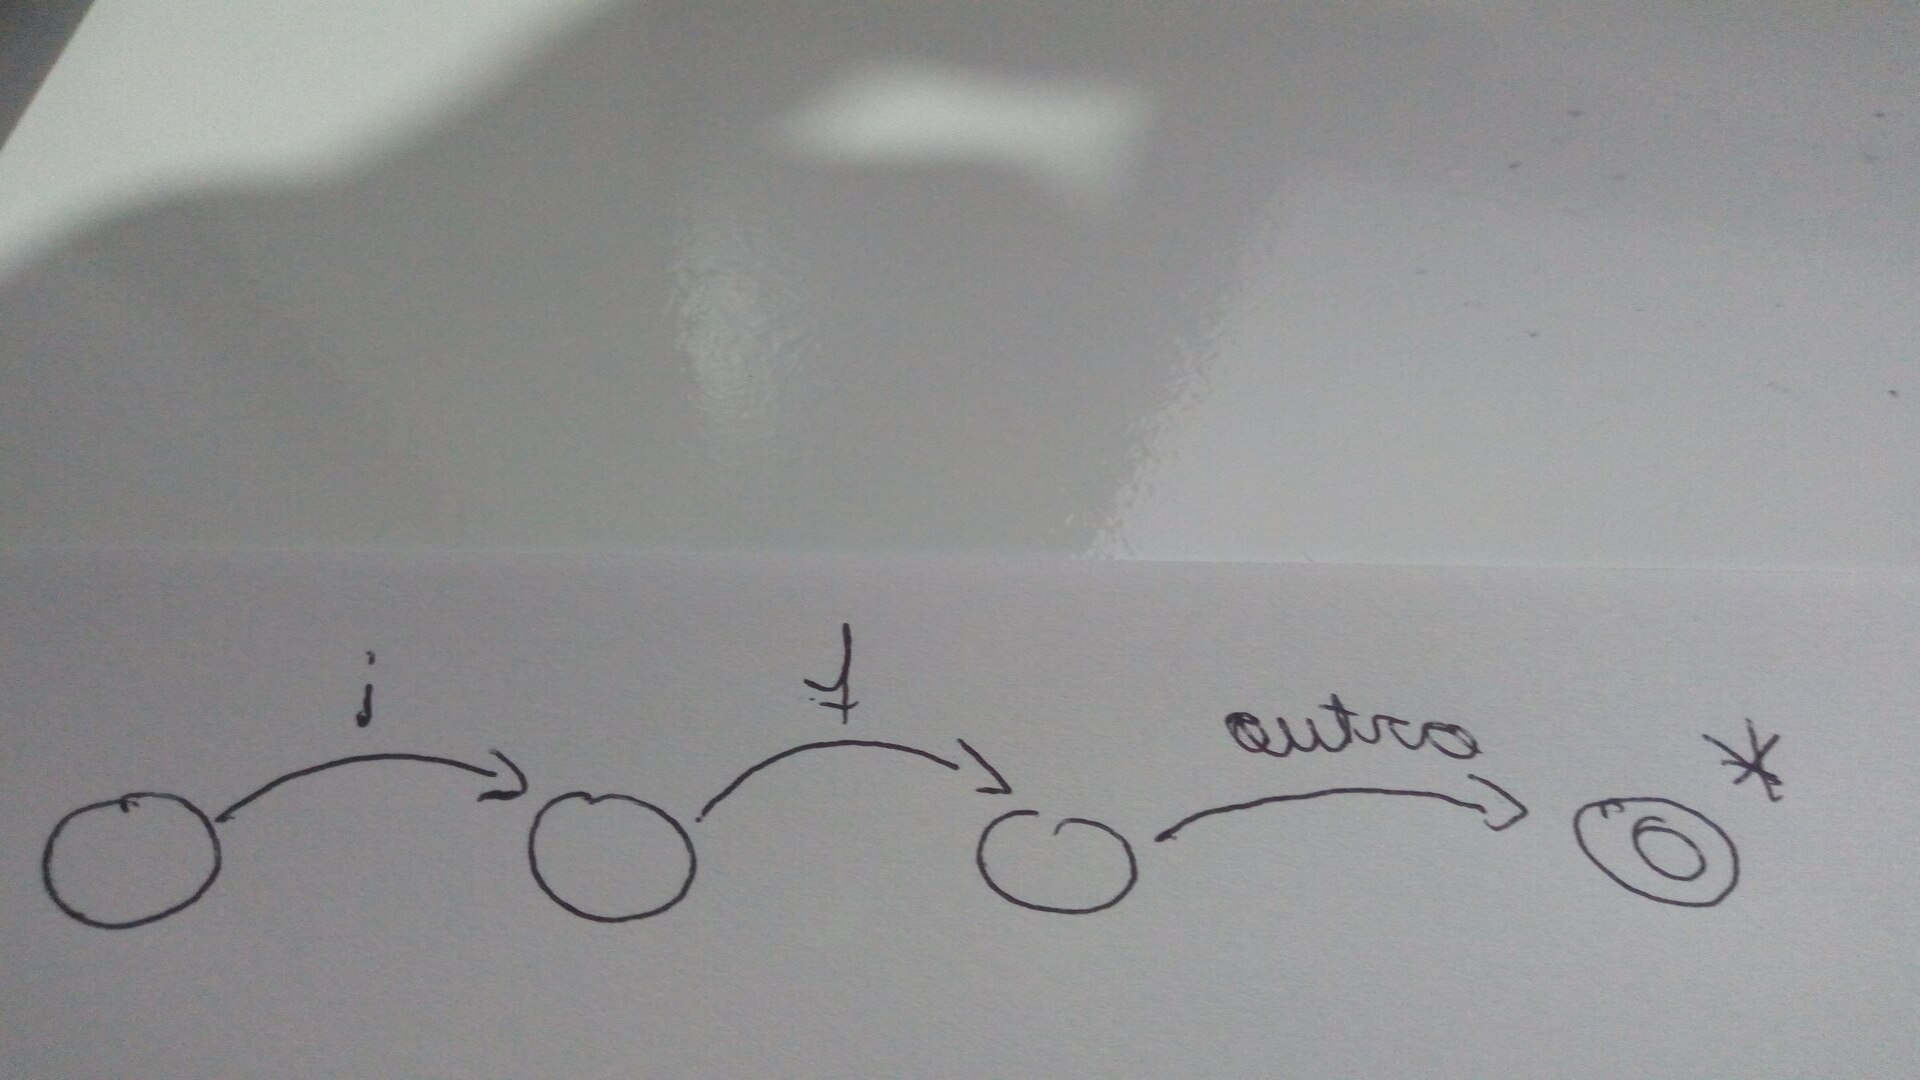 i f outro *